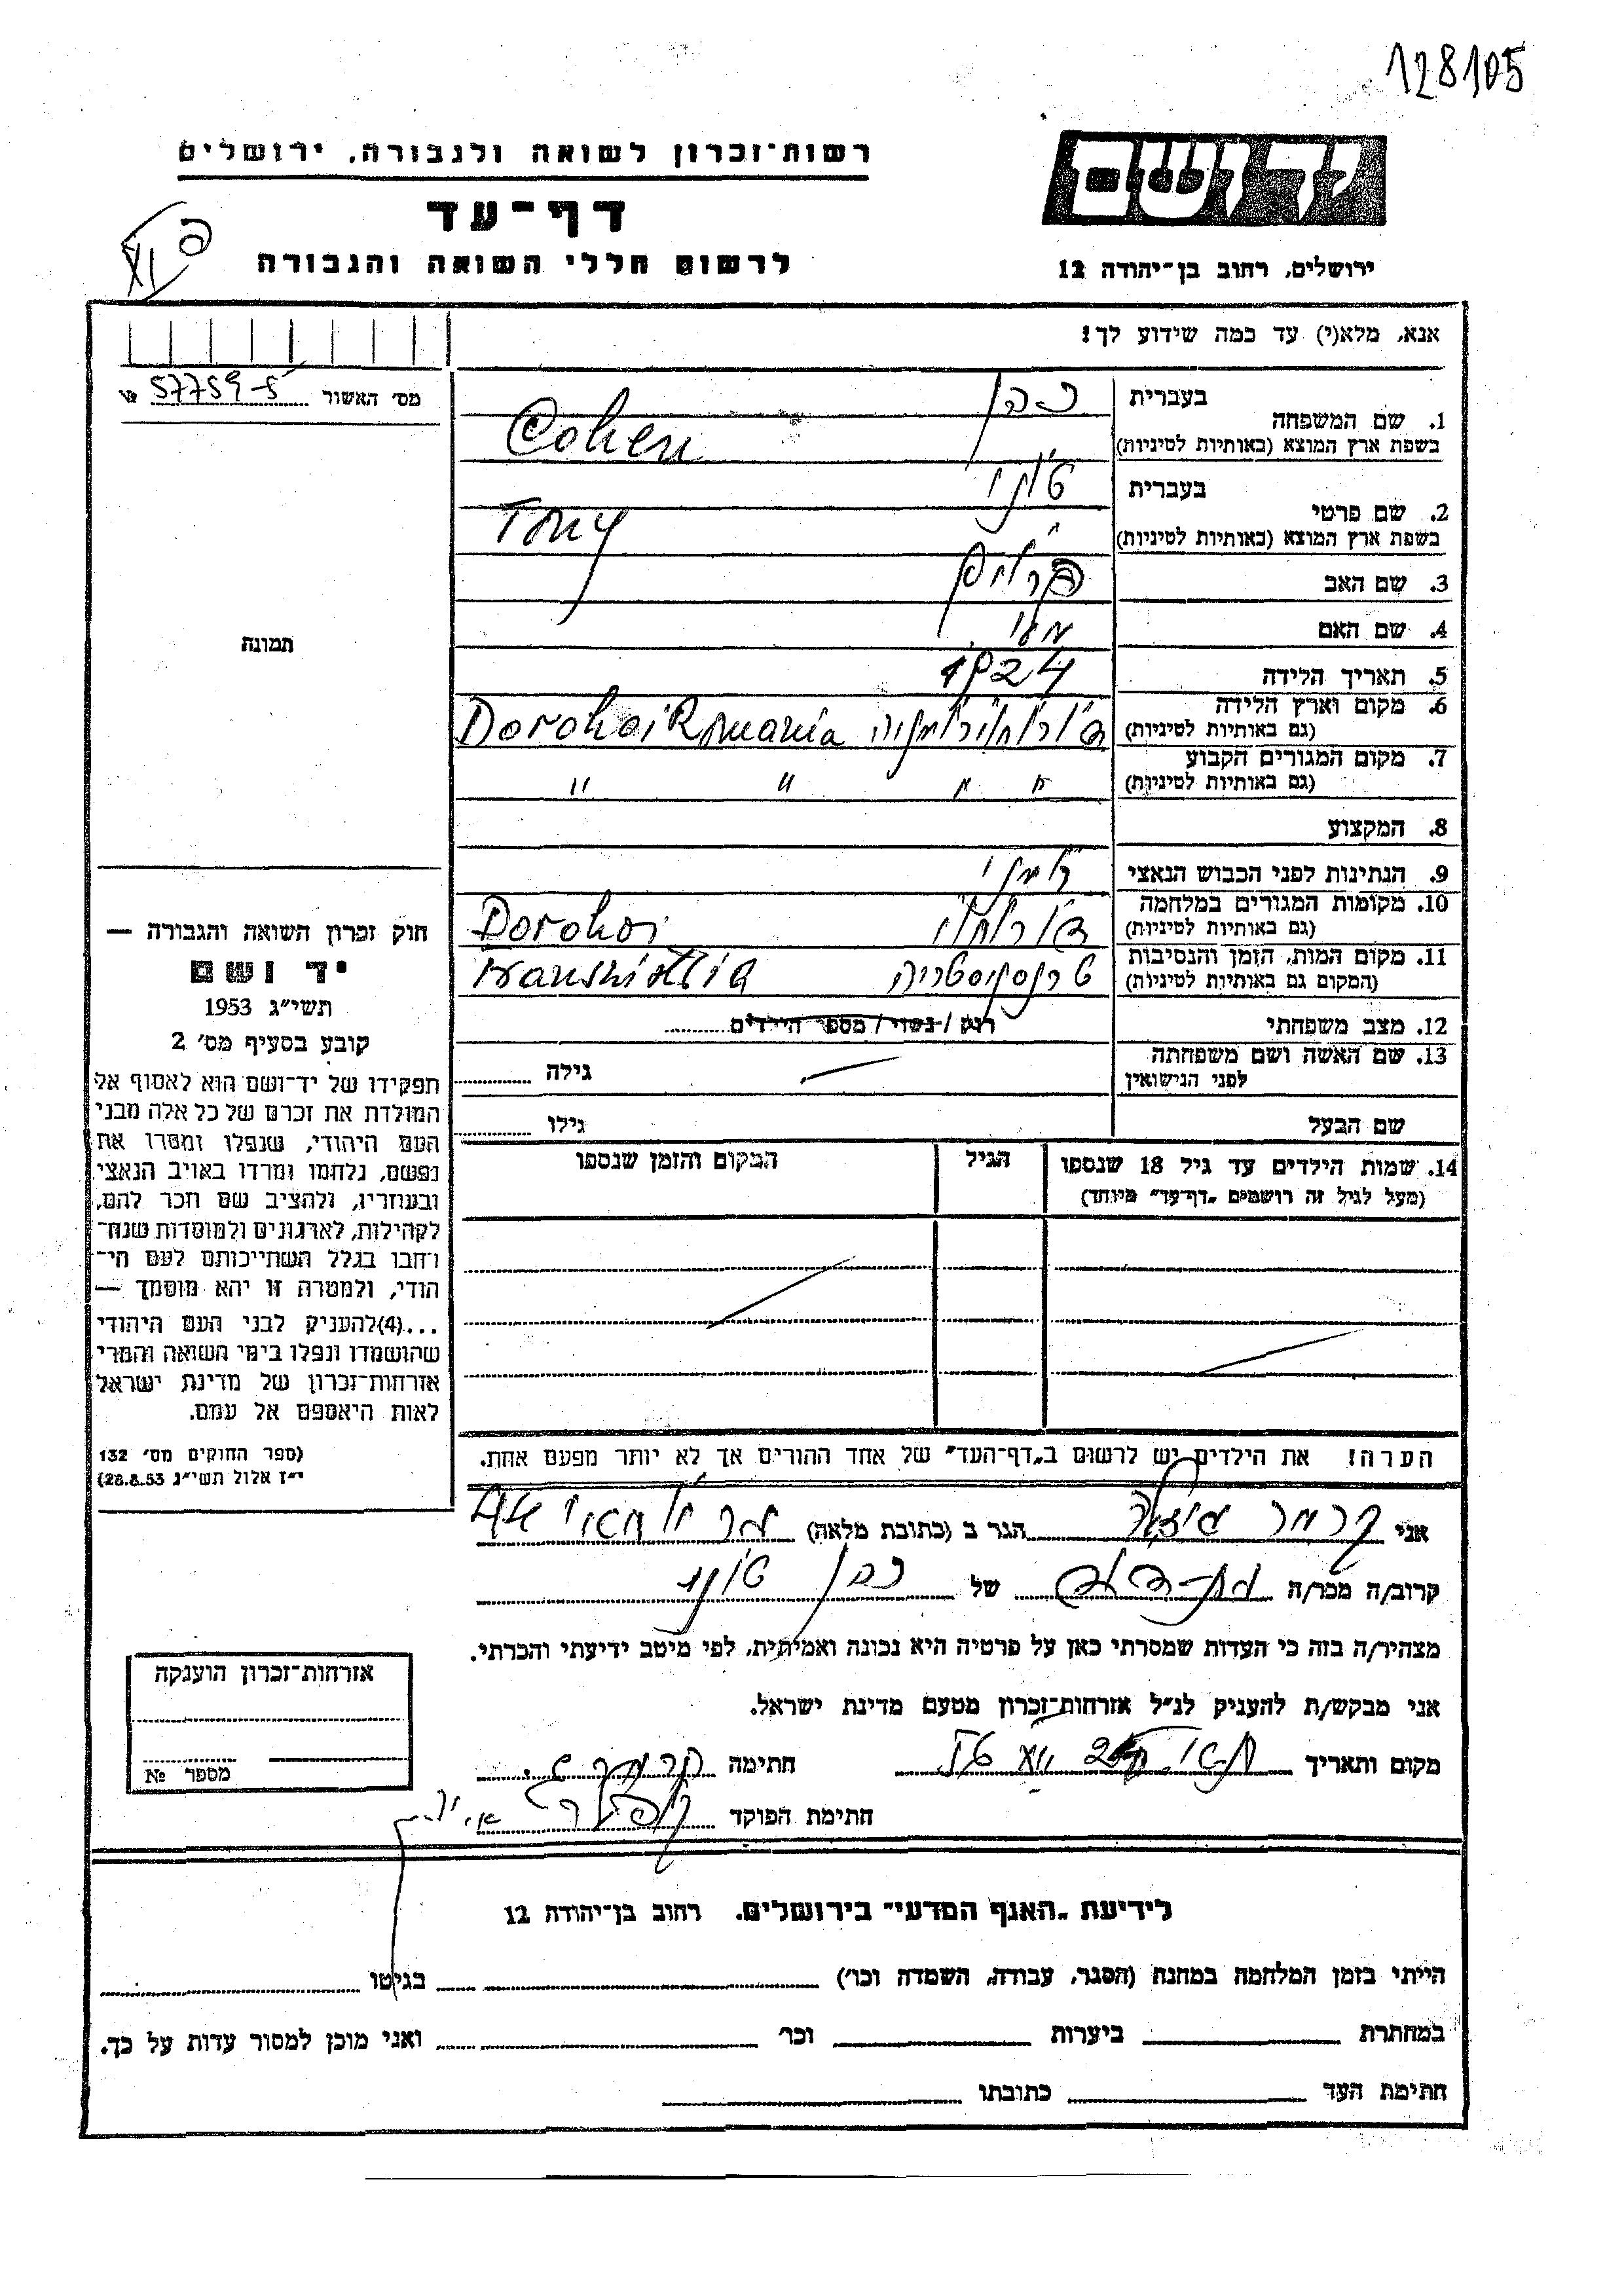 128105
רשות־זכרון לשואה ולגבורה, ירושלים
יד ושם
דף־עד
לרשום חללי השואה והגבורה
ירושלים, רחוב בן־יהודה 12
אנא, מלא(י) עד כמה שידוע לך!
מס׳ האשור 57759-5 №
1. שם המשפחה
בעברית כהן
בשפת ארץ המוצא (באותיות לטיניות) Cohen
2. שם פרטי
בעברית טוני
בשפת ארץ המוצא (באותיות לטיניות) Tony
3. שם האב
4. שם האם
5. תאריך הלידה 1924
6. מקום וארץ הלידה
(גם באותיות לטיניות) Dorohoi Romania
7. מקום המגורים הקבוע
(גם באותיות לטיניות) " " " "
8. המקצוע
9. הנתינות לפני הכבוש הנאצי רומני
10. מקומות המגורים במלחמה
(גם באותיות לטיניות) דורוחוי Dorohoi
11. מקום המות, הזמן והנסיבות
(המקום גם באותיות לטיניות) טרנסניסטריה
12. מצב משפחתי רוק / נשוי / מספר הילדים
13. שם האשה ושם משפחתה
לפני הנישואין גילה
שם הבעל גילו
14. שמות הילדים עד גיל 18 שנספו
(מעל לגיל זה רושמים „דף־עד" מיוחד)
הגיל
המקום והזמן שנספו
הערה! את הילדים יש לרשום ב„דף־העד" של אחד ההורים אך לא יותר מפעם אחת.
תמונה
חוק זכרון השואה והגבורה —
יד ושם
תשי״ג 1953
קובע בסעיף מס׳ 2
תפקידו של יד־ושם הוא לאסוף אל
המולדת את זכרם של כל אלה מבני
העם היהודי, שנפלו ומסרו את
נפשם, נלחמו ומרדו באויב הנאצי
ובעוזריו, ולהציב שם וזכר להם,
לקהילות, לארגונים ולמוסדות שנח־
רבו בגלל השתייכותם לעם הי־
הודי, ולמטרה זו יהא מוסמך —
...(4) להעניק לבני העם היהודי
שהושמדו ונפלו בימי השואה והמרי
אזרחות־זכרון של מדינת ישראל
לאות היאספם אל עמם.
(ספר החוקים מס׳ 132
י״ז אלול תשי״ג 28.8.53)
אני קרמר הגר ב (כתובת מלאה)
קרוב/ה מכר/ה של כהן טוני
מצהיר/ה בזה כי העדות שמסרתי כאן על פרטיה היא נכונה ואמיתית, לפי מיטב ידיעתי והכרתי.
אני מבקש/ת להעניק לנ״ל אזרחות־זכרון מטעם מדינת ישראל.
מקום ותאריך חתימה
חתימת הפוקד
אזרחות־זכרון הוענקה
מספר №
לידיעת „האגף המדעי" בירושלים, רחוב בן־יהודה 12
הייתי בזמן המלחמה במחנה (הסגר, עבודה, השמדה וכו׳) בגיטו
במחתרת ביערות וכו׳ ואני מוכן למסור עדות על כך.
חתימת העד כתובתו